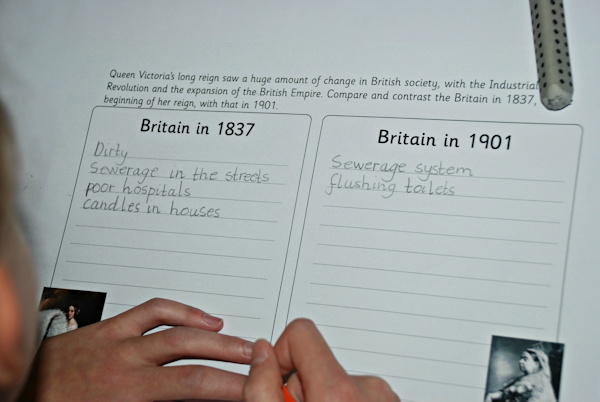 Queen Victoria's long reign saw a huge amount of change in British society, with the Industrial
Revolution and the expansion of the British Empire. Compare and contrast the Britain in 1837,
beginning of her reign, with that in 1901.
Britain in 1837
Dirty
Sewerage in the streets
poor hospitals
candles in houses
Britain in 1901
Sewerage system
flushing toilets